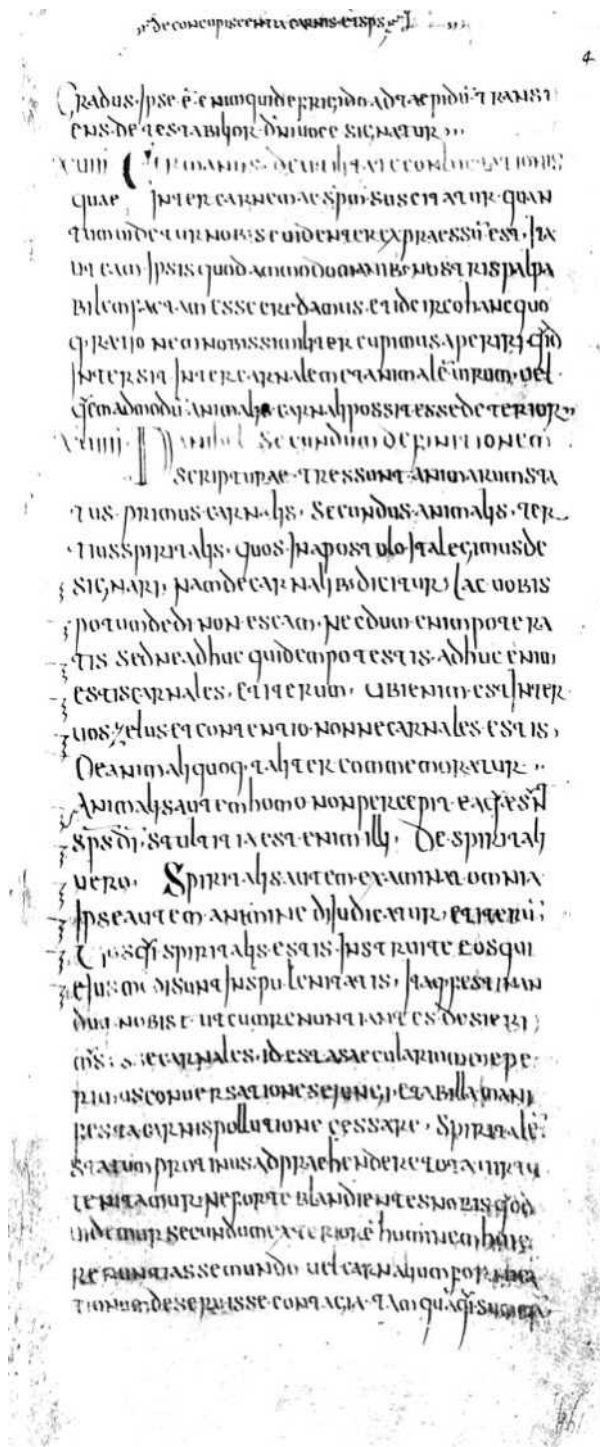 de concupiscentia carnis et sps
4
Gradus. Ipse ē enim qui de frigido ad taepidū transi
ens detestabilior dni uoce signatur
XUIII Germanus. de utilitate conluctationis
quae Inter carnem ac spm suscitatur quan
tum uidetur nobis euidenter expraessū est. Ita
ut eam Ipsis quodammodo manib. nostris palpa
bilem factam esse credamus. et idcirco hanc quo
q. rationem nobis similiter cupimus aperiri. qd
Intersit Inter carnalem et animalē uirum. uel
qemadmodū animalis carnali possit esse deterior
XUIIII. Danihel Secundum definitionem
scripturae tres sunt animarum sta
tus. primus carnalis. Secundus animalis. ter
tius spiritalis. quos In apostulo Ita legimus de
signari. nam de carnalib. dicitur. Lac uobis
potum dedi non escam. Necdum enim potera
tis sed ne adhuc quidem potestis. adhuc enim
estis carnales. et iterum. Ubi enim est Inter
uos zelus et contentio nonne carnales estis.
De animali quoq. taliter commemoratur
Animalis autem homo non percepit ea q̄ae s̄n
sps dī. stultitia est enim illi. De spiritali
uero. Spiritalis autem examinat omnia
Ipse autem a nimine diIudicatur. et iterū
Uos qi spiritalis estis. Instruite eos qui
eIusmodi sunt In spu lenitatis. Itaq. festinan
dum nobis ē. ut cum renuntiantes desieri
m̄s esse carnales. id est a saecularium coepe
rimus conuersatione seIungi. et ab illa mani
festa carnis pollutione cessare. Spiritalē
statum protinus adpraehendere tota uirtu
te nitamur. ne forte blandientes nobis qod
uidemur secundum exteriorē hominem huic
renuntiasse mundo uel carnalium fornica
tionum deseruisse contagia. tamquā qi